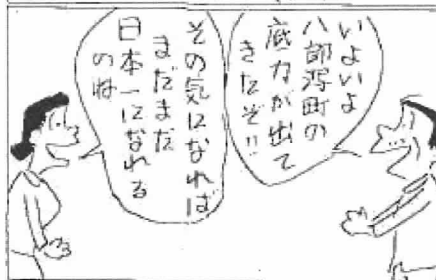 いよいよ
八郎潟町の
底力が出て
きたぞ!!
その気になれば
まだまだ
日本一になれる
のね